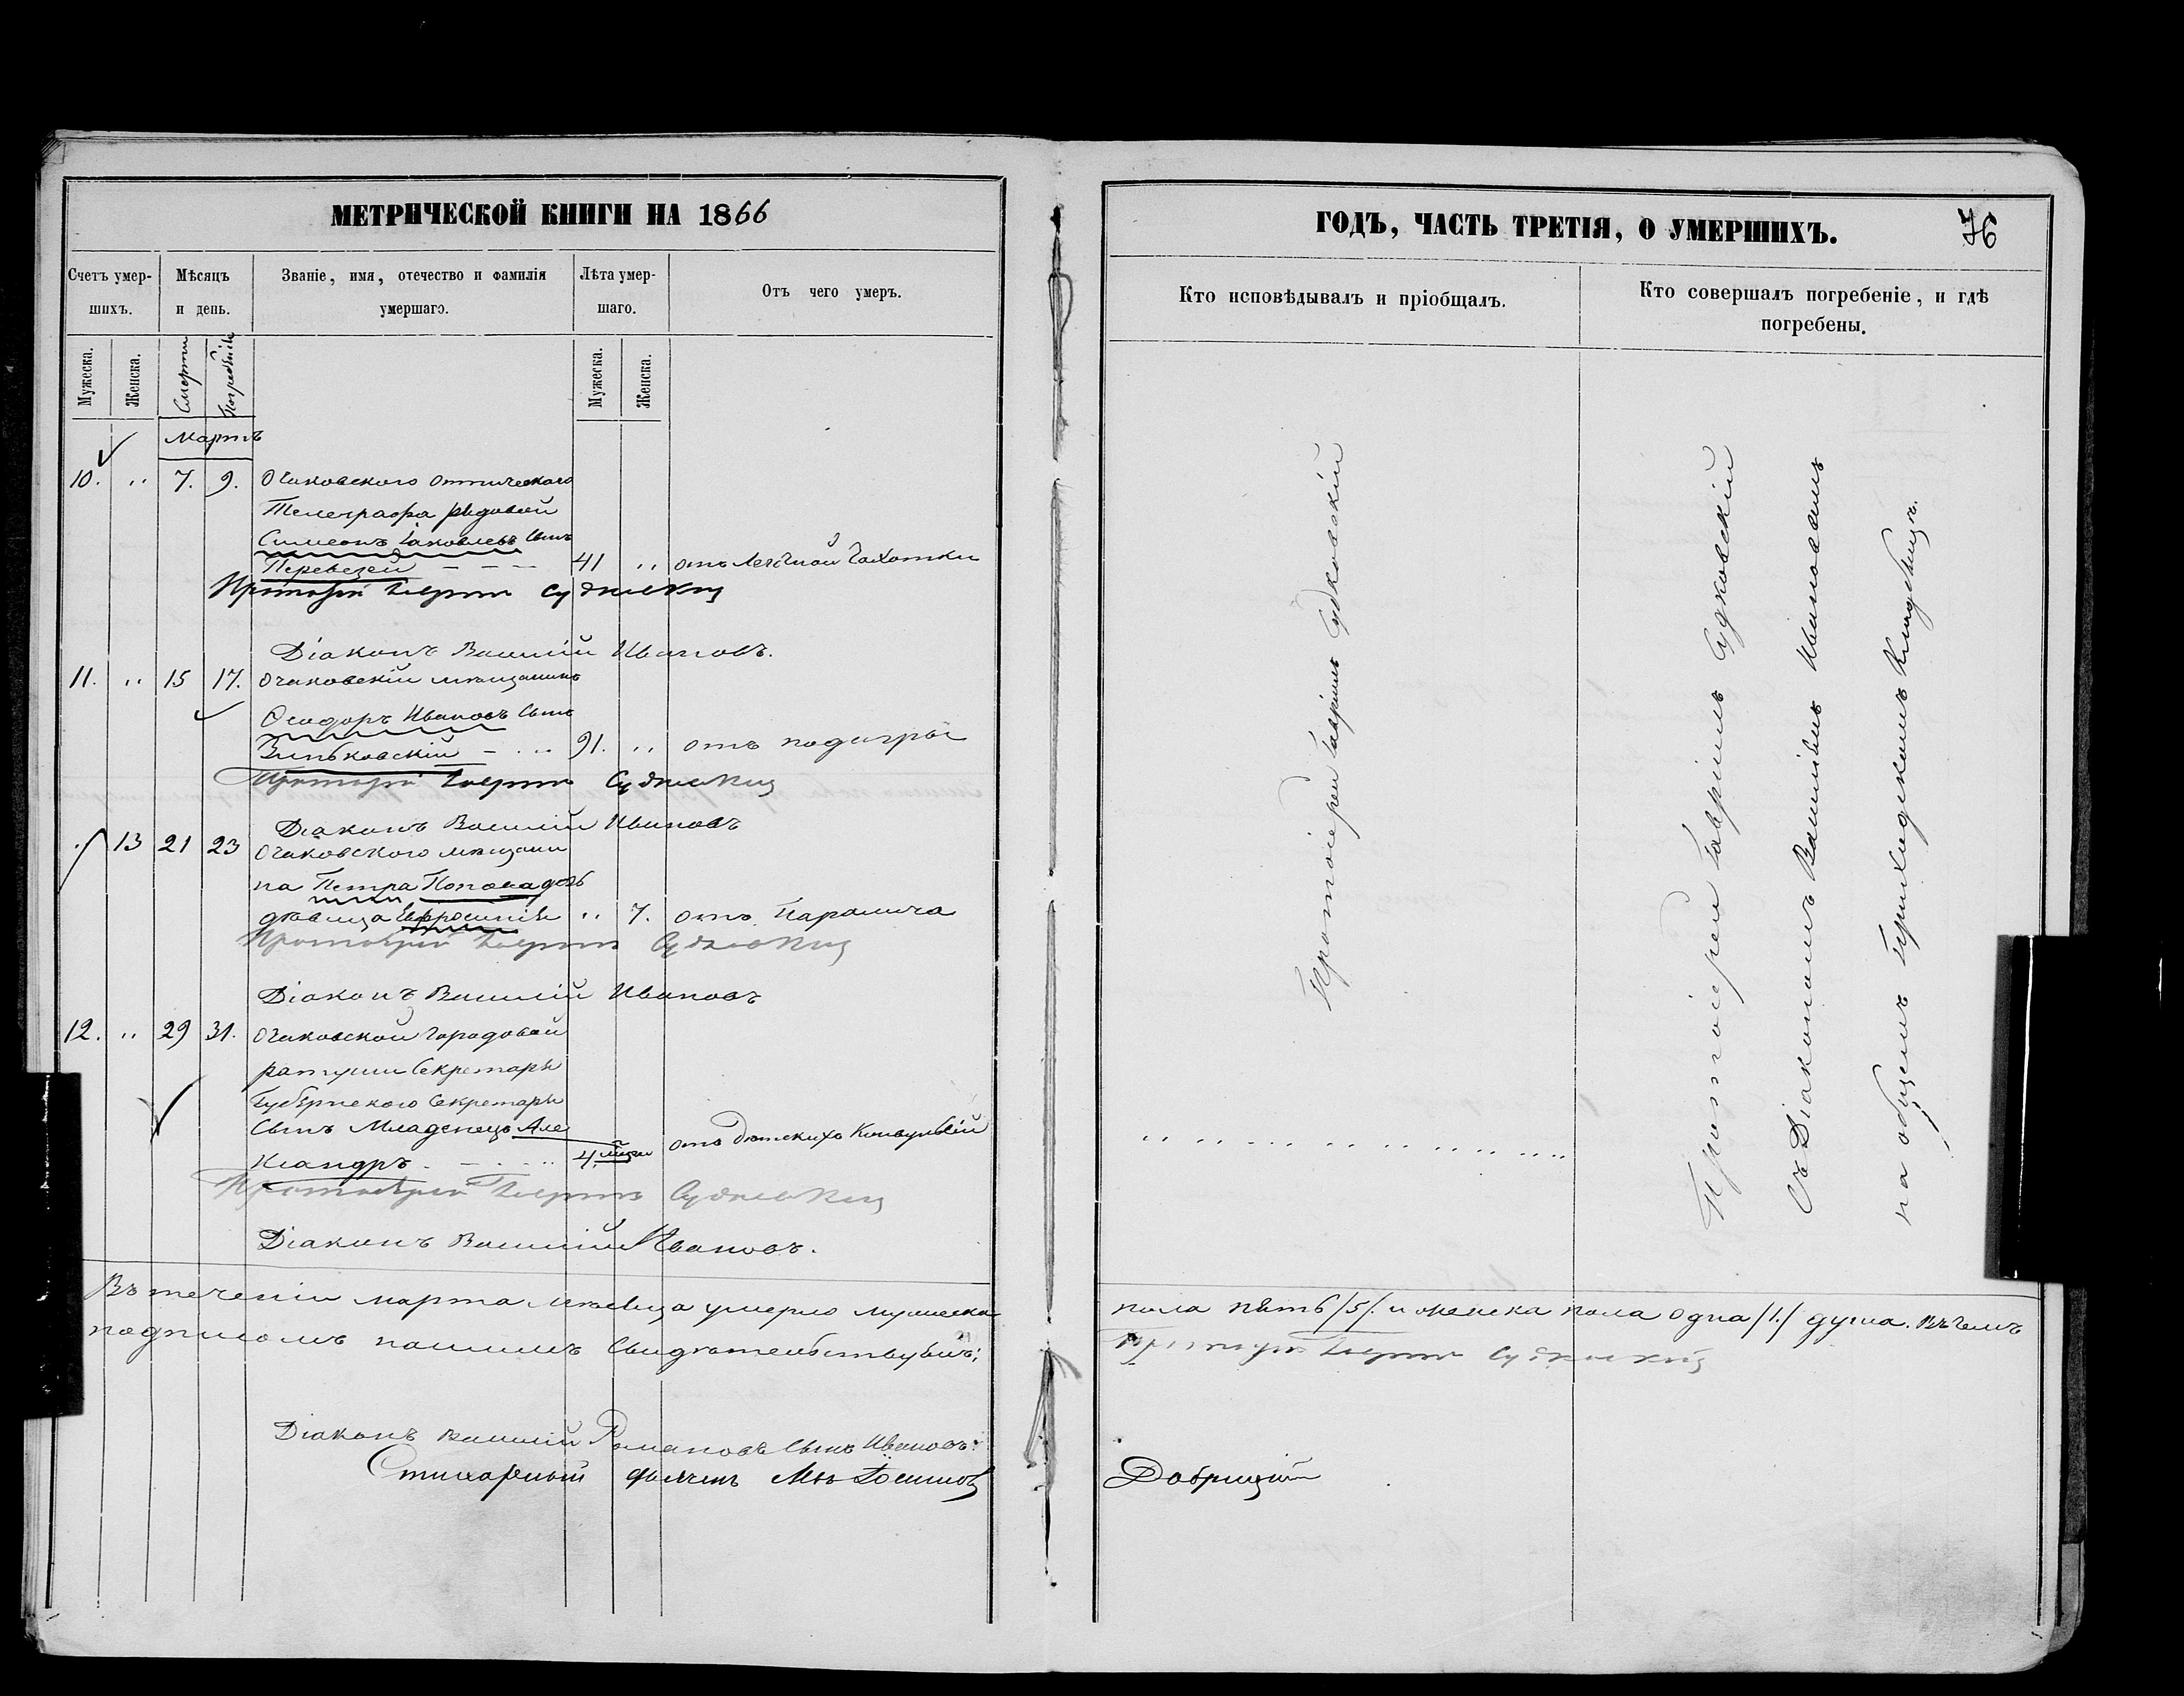 МЕТРИЧЕСКОЙ КНИГИ НА 1866
Счетъ умер-
шихъ.
Мѣсяцъ
и день.
Званіе, имя, отечество и фамилія
умершаго.
Лѣта умер-
шаго.
Отъ чего умеръ.
Мужеска.
Женска.
Смерти
Погребенія
Мужеска.
Женска.
Мартъ
10. „ 7. 9. Очаковского оптическаго
Телеграфа рядовой
Симеонъ Іаковлевъ сынъ
Перевезей 41 „ отъ легочной чахотки
Протоіерей Гавріилъ Судковскій
Діаконъ Василій Ивановъ.
11. „ 15 17. Очаковскій мѣщанинъ
Ѳеодоръ Ивановъ сынъ
Зиньковскій 91. „ отъ подагры
Протоіерей Гавріилъ Судковскій
Діаконъ Василій Ивановъ
13 21 23 Очаковского мѣщани
на Петра Попова дочь
дѣвица Евфросинія „ 7. отъ Паралича
Протоіерей Гавріилъ Судковскій
Діаконъ Василій Ивановъ
12. „ 29 31. Очаковской городовой
ратуши Секретаря
Губернского Секретаря
сынъ Младенецъ Але
ксандръ. 4. отъ дѣтскихъ Конвульсій
Протоіерей Гавріилъ Судковскій
Діаконъ Василій Ивановъ.
Въ теченіи марта мѣсяца умерло мужеска
подписомъ нашимъ свидѣтельствуемъ:
Діаконъ Василій Романовъ сынъ Ивановъ.
Стихарный
ГОДЪ, ЧАСТЬ ТРЕТІЯ, О УМЕРШИХЪ.
76
Кто исповѣдывалъ и пріобщалъ.
Кто совершалъ погребеніе, и гдѣ
погребены.
Протоіерей Гавріилъ Судковскій
Протоіерей Гавріилъ Судковскій
съ Діакономъ Василіемъ Ивановымъ
на общемъ Приходскомъ Кладбищѣ.
пола пять /5/. и женска пола одна /1./ душа. Въ чемъ
Протоіерей Гавріилъ Судковскій
Добрицкій